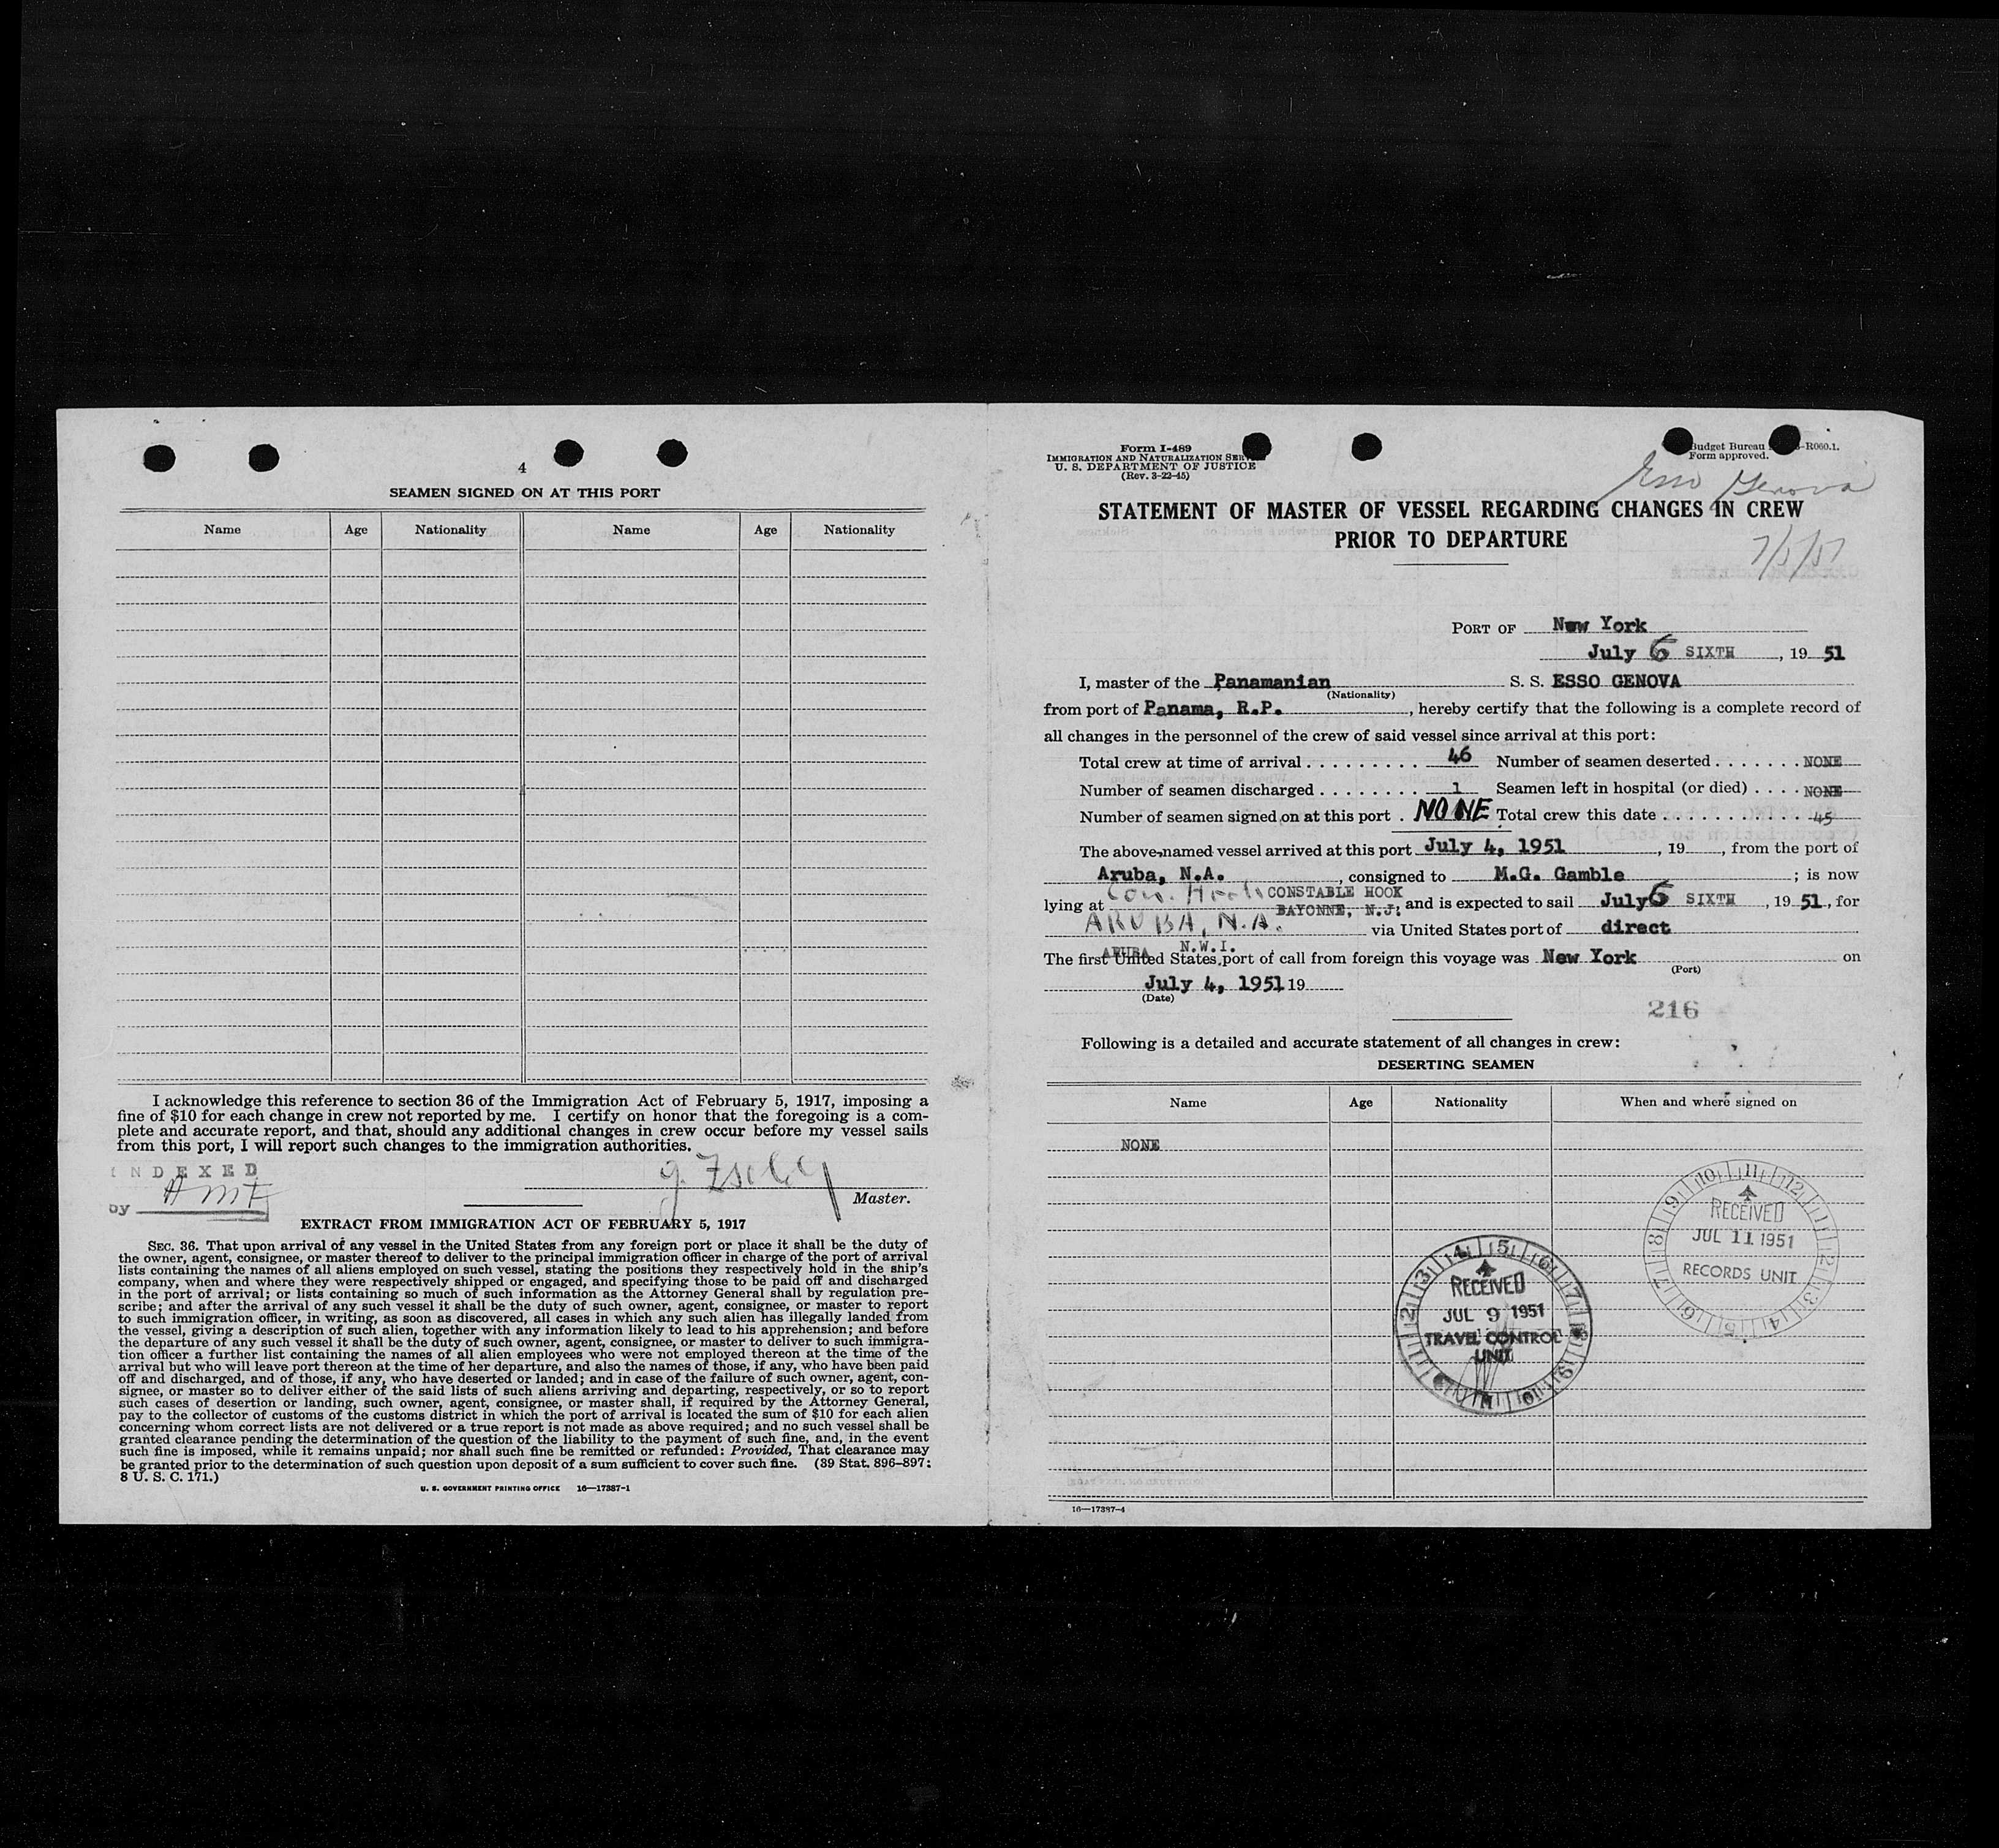 4
SEAMEN SIGNED ON AT THIS PORT
Name Age Nationality Name Age Nationality
I acknowledge this reference to section 36 of the Immigration Act of February 5, 1917, imposing a
fine of $10 for each change in crew not reported by me. I certify on honor that the foregoing is a com-
plete and accurate report, and that, should any additional changes in crew occur before my vessel sails
from this port, I will report such changes to the immigration authorities.
INDEXED
by
Master.
EXTRACT FROM IMMIGRATION ACT OF FEBRUARY 5, 1917
SEC. 36. That upon arrival of any vessel in the United States from any foreign port or place it shall be the duty of
the owner, agent, consignee, or master thereof to deliver to the principal immigration officer in charge of the port of arrival
lists containing the names of all aliens employed on such vessel, stating the positions they respectively hold in the ship's
company, when and where they were respectively shipped or engaged, and specifying those to be paid off and discharged
in the port of arrival; or lists containing so much of such information as the Attorney General shall by regulation pre-
scribe; and after the arrival of any such vessel it shall be the duty of such owner, agent, consignee, or master to report
to such immigration officer, in writing, as soon as discovered, all cases in which any such alien has illegally landed from
the vessel, giving a description of such alien, together with any information likely to lead to his apprehension; and before
the departure of any such vessel it shall be the duty of such owner, agent, consignee, or master to deliver to such immigra-
tion officer a further list containing the names of all alien employees who were not employed thereon at the time of the
arrival but who will leave port thereon at the time of her departure, and also the names of those, if any, who have been paid
off and discharged, and of those, if any, who have deserted or landed; and in case of the failure of such owner, agent, con-
signee, or master so to deliver either of the said lists of such aliens arriving and departing, respectively, or so to report
such cases of desertion or landing, such owner, agent, consignee, or master shall, if required by the Attorney General,
pay to the collector of customs of the customs district in which the port of arrival is located the sum of $10 for each alien
concerning whom correct lists are not delivered or a true report is not made as above required; and no such vessel shall be
granted clearance pending the determination of the question of the liability to the payment of such fine, and, in the event
such fine is imposed, while it remains unpaid; nor shall such fine be remitted or refunded: Provided, That clearance may
be granted prior to the determination of such question upon deposit of a sum sufficient to cover such fine. (39 Stat. 896-897;
8 U. S. C. 171.)
U. S. GOVERNMENT PRINTING OFFICE 16—17387-1
Form I-489
IMMIGRATION AND NATURALIZATION
U. S. DEPARTMENT OF JUSTICE
(Rev. 3-22-45)
Budget Bureau -R060.1.
Form approved.
Esso Genova
STATEMENT OF MASTER OF VESSEL REGARDING CHANGES IN CREW
PRIOR TO DEPARTURE
7/5/51
PORT OF New York
July 6 SIXTH, 19 51
I, master of the Panamanian S. S. ESSO GENOVA
(Nationality)
from port of Panama, R.P., hereby certify that the following is a complete record of
all changes in the personnel of the crew of said vessel since arrival at this port:
Total crew at time of arrival . . . . . . . . . 46 Number of seamen deserted . . . . . . . NONE
Number of seamen discharged . . . . . . . . 1 Seamen left in hospital (or died) . . . . NONE
Number of seamen signed on at this port . NONE Total crew this date . . . . . . . . . . . . 45
The above-named vessel arrived at this port July 4, 1951, 19, from the port of
Aruba, N.A., consigned to M.G. Gamble; is now
lying at Con. Hook CONSTABLE HOOK BAYONNE, N.J. and is expected to sail July 6 SIXTH, 19 51, for
ARUBA, N.A. via United States port of direct
ARUBA N.W.I.
The first United States port of call from foreign this voyage was New York on
(Port)
July 4, 1951 19
(Date)
216
Following is a detailed and accurate statement of all changes in crew:
DESERTING SEAMEN
Name Age Nationality When and where signed on
NONE
RECEIVED
JUL 11 1951
RECORDS UNIT
RECEIVED
JUL 9 1951
TRAVEL CONTROL
UNIT
16—17387-4